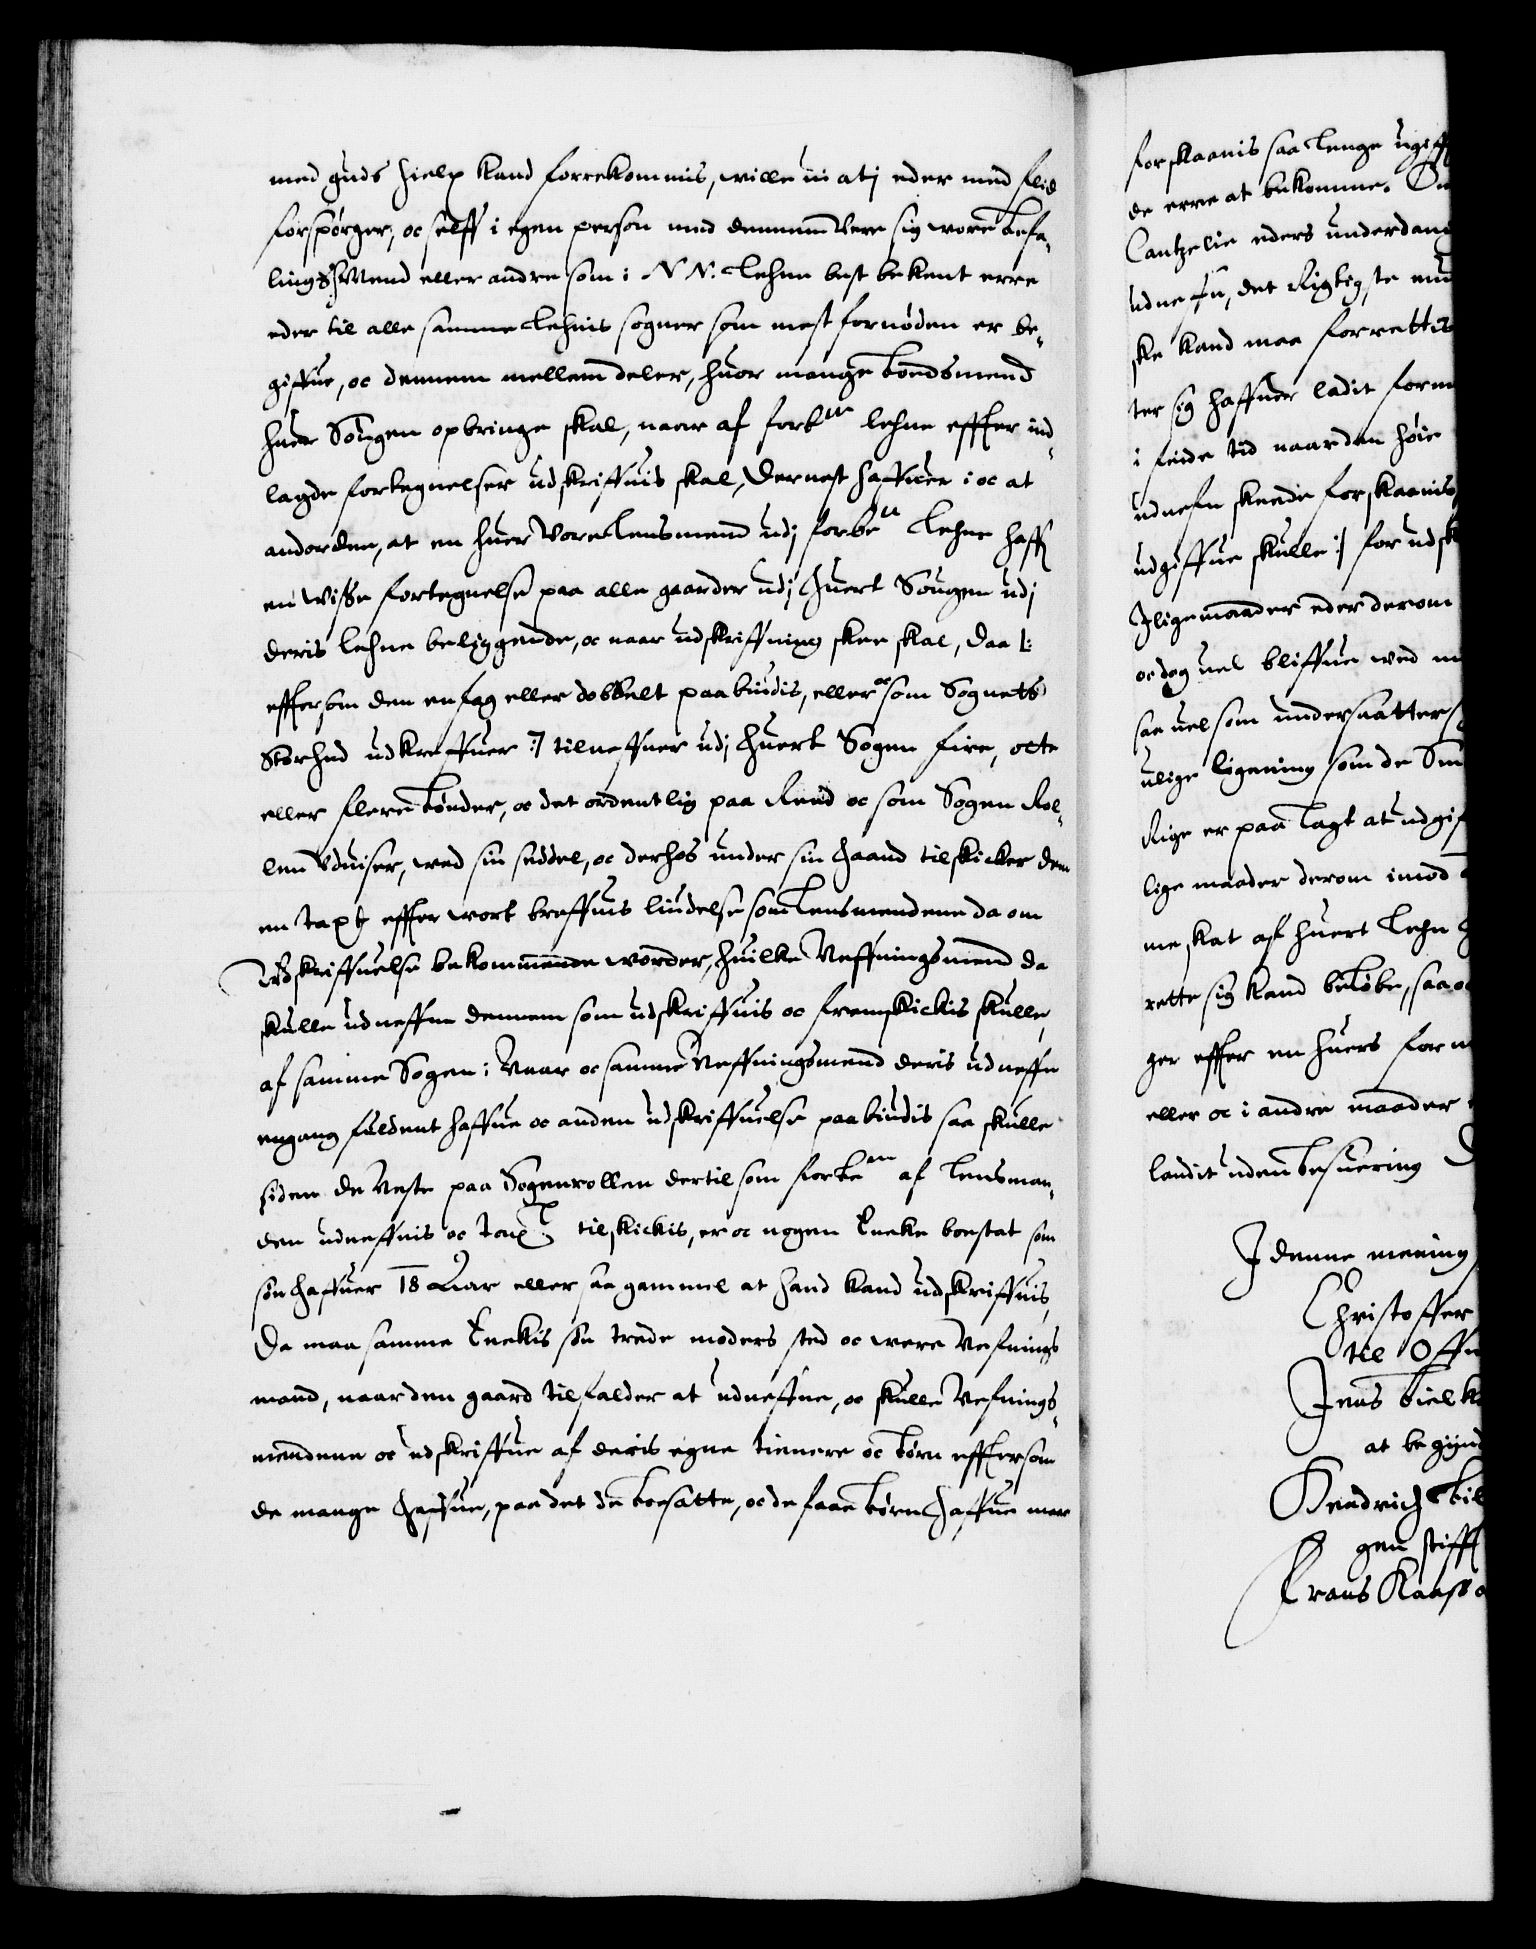 med guds hielp kand forrekommis, wille wi atj eder med flid
forspørger, oc self i egen person med dennem Vere sig wore befa-
lings Mend eller andre som i N N. Lehne best bekent erre
eder til alle samme Lehnis sogner som mest fornøden er be-
giffue, oc dennem mellem deler, huor mange bondsmend
huer Sougen opbringe skal, naar af forbne lehne effter ind-
lagde fortegnelser udskriffuis skal, Dernest haffuer i oc at
andorden, at en huer Vore Lensmend udj forbete Lehne haffr
en Wisse fortegnelse paa alle gaarder udj huert Sougen udj
deris lehne beliggende, oc naar udskriffning skee skal, daa /:
effter som den enfag eller dobbelt paabiudis, eller oc som Sognets
Storhed udkreffuer :/ tilneffner udj huert Sogen fire, otte
eller flere bønder, oc det ordentlig paa Reed oc som Sogen Rol-
len Vduiser, wed sin seddel, oc derhos under sin haand tilskicker dem
en Taxt effter wort breffuis liudelse som Lensmendene da om
Udskriffuelse bekommende worder, huilke Neffningsmend da
skulle udneffne dennem som udskriffuis oc fremskickis skulle,
af samme Sogen: Naar oc samme Neffningsmend deris udneffn
engang fuldent haffue oc anden udskriffuelse paabiudis saa skulle
siden de Neste paa Sogenrollen dertil som forbete af Lensman-
den udneffnis oc Taxt tilskickis, er oc nogen Encke boesat som
søn haffuer 18 Aar eller saa gammel at hand kand udskriffuis,
Da maa samme Enckis søn trede moders sted oc were Nefnings
mand, naar den gaard tilfalder at udneffne, oc skulle Nefnings-
mendene oc udskriffue af deris egne tienere oc børn effter som
de mange haffue, paa det de boesatte, oc de faae børn haffue maa
forskaanis saa lenge ugiff
de erre at bekomme. 
Cantzelie eders underdanig
udneffn, det Rigtigste mu
ske kand maa forrettis
ter sig haffuer ladit form
i feide tid naar den høie
udneffn skeede forskaanis,
udgiffue skulle :/ for udsk
Iligemaader eder derom
oc dog uel bliffue wed m
saa uel som undersaatter
ulige ligening som de Sm
Rige er paa lagt at udgif
lige maader derom imod
me skat af huert Lehn
rette sig kand beløbe, saa oc
ger effter en huers form
eller oc i andre maader
landit uden besuering
I denne mening
Christoffer
til Offr
Jens Bielke
at begynd
Hendrich Bil
gen stifft
Frans Kaass